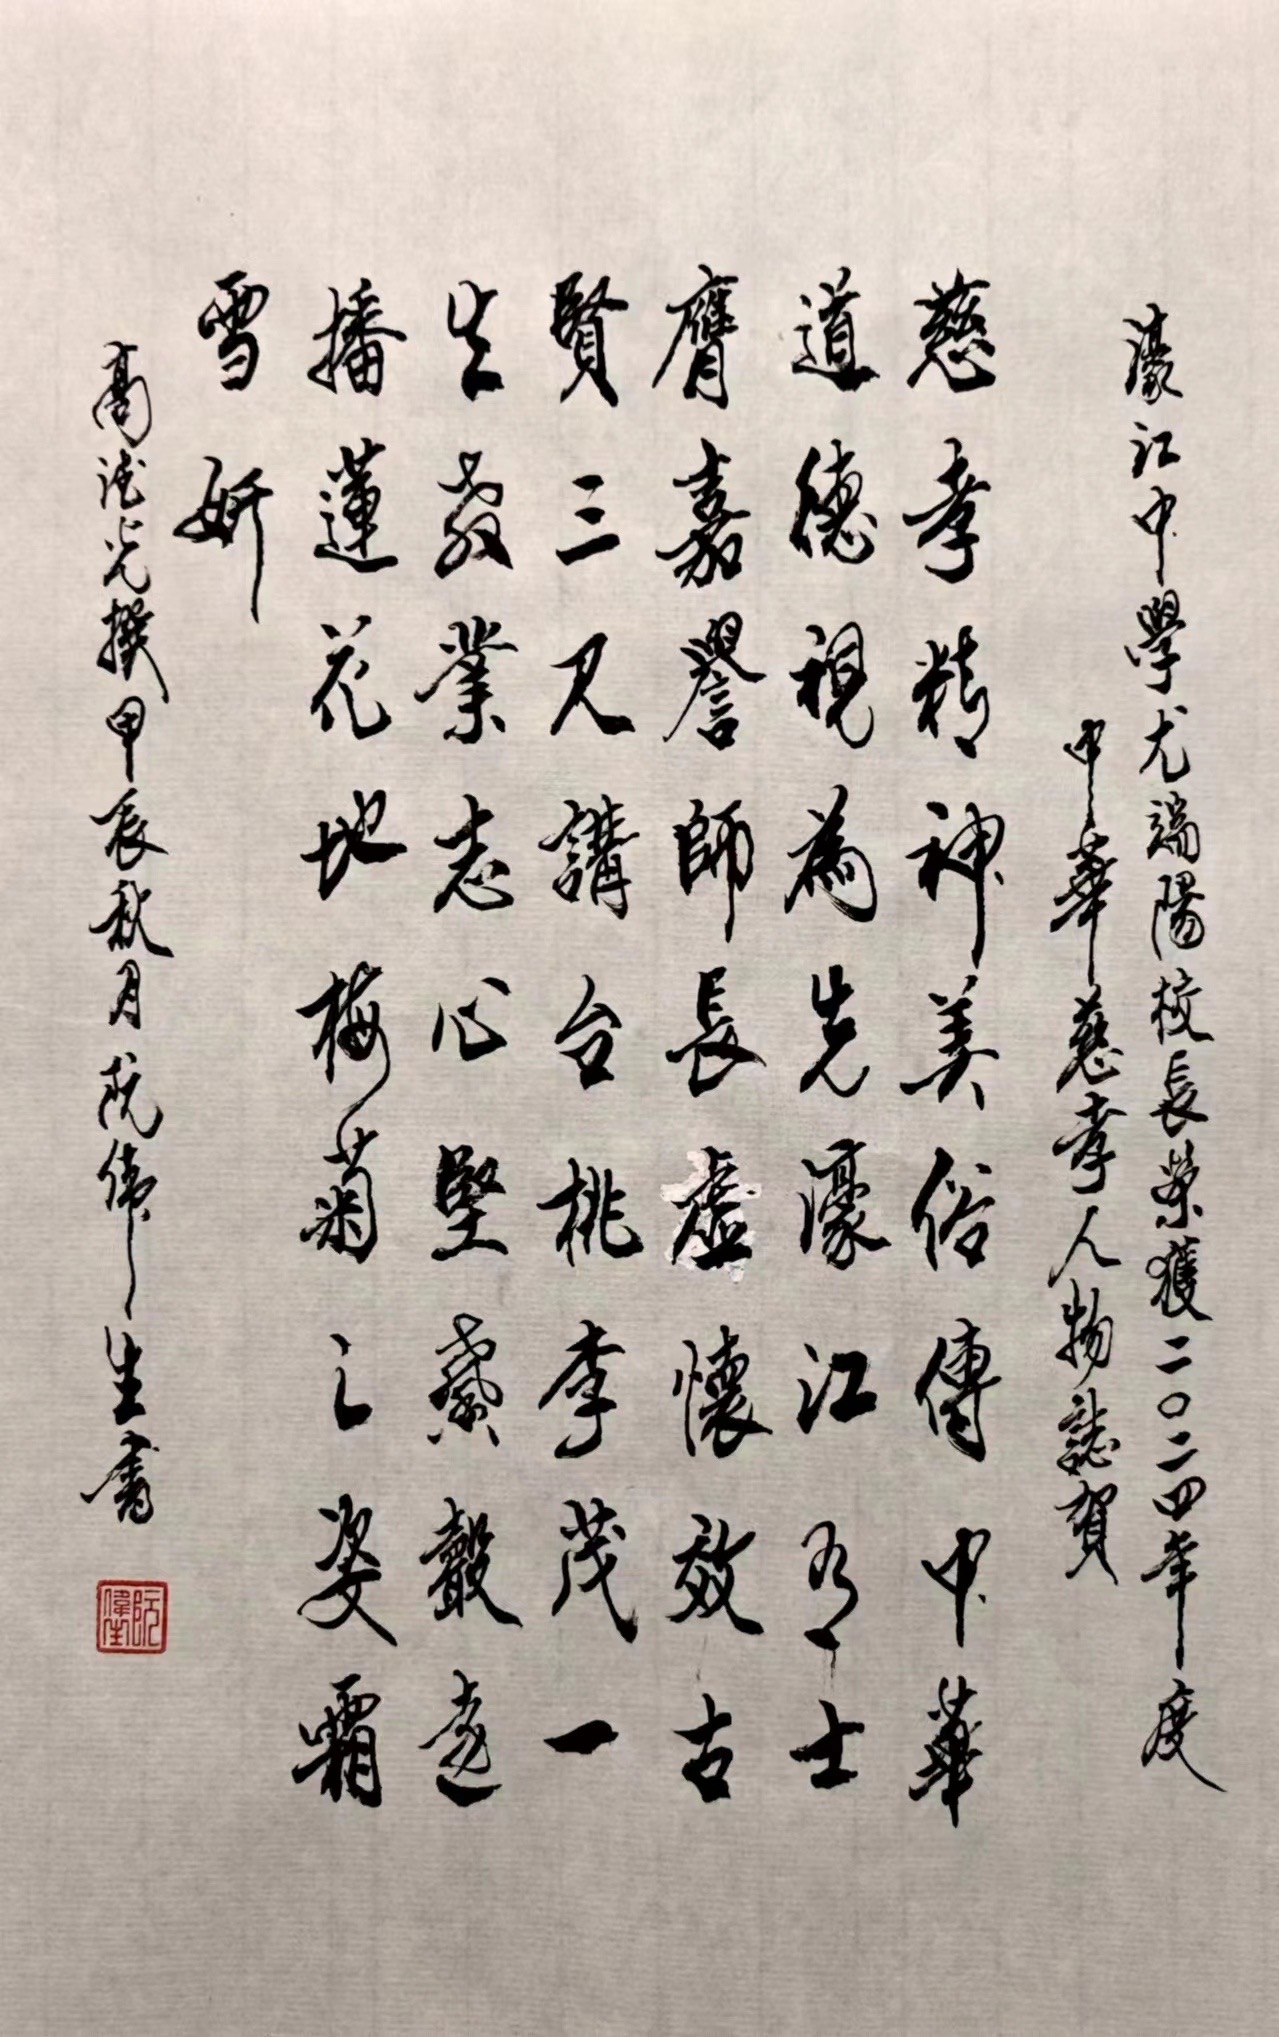 濠江中學尤端陽校長榮獲二〇二四年度
中華慈孝人物誌賀
慈孝精神美俗傳中華
道德視為先濠江多士
膺嘉譽師長虛懷效古
賢三尺講台桃李茂一
生教業志心堅馨聲遠
播蓮花地梅菊之姿霜
雪妍
高德光撰甲辰秋月阮偉生書
阮偉生